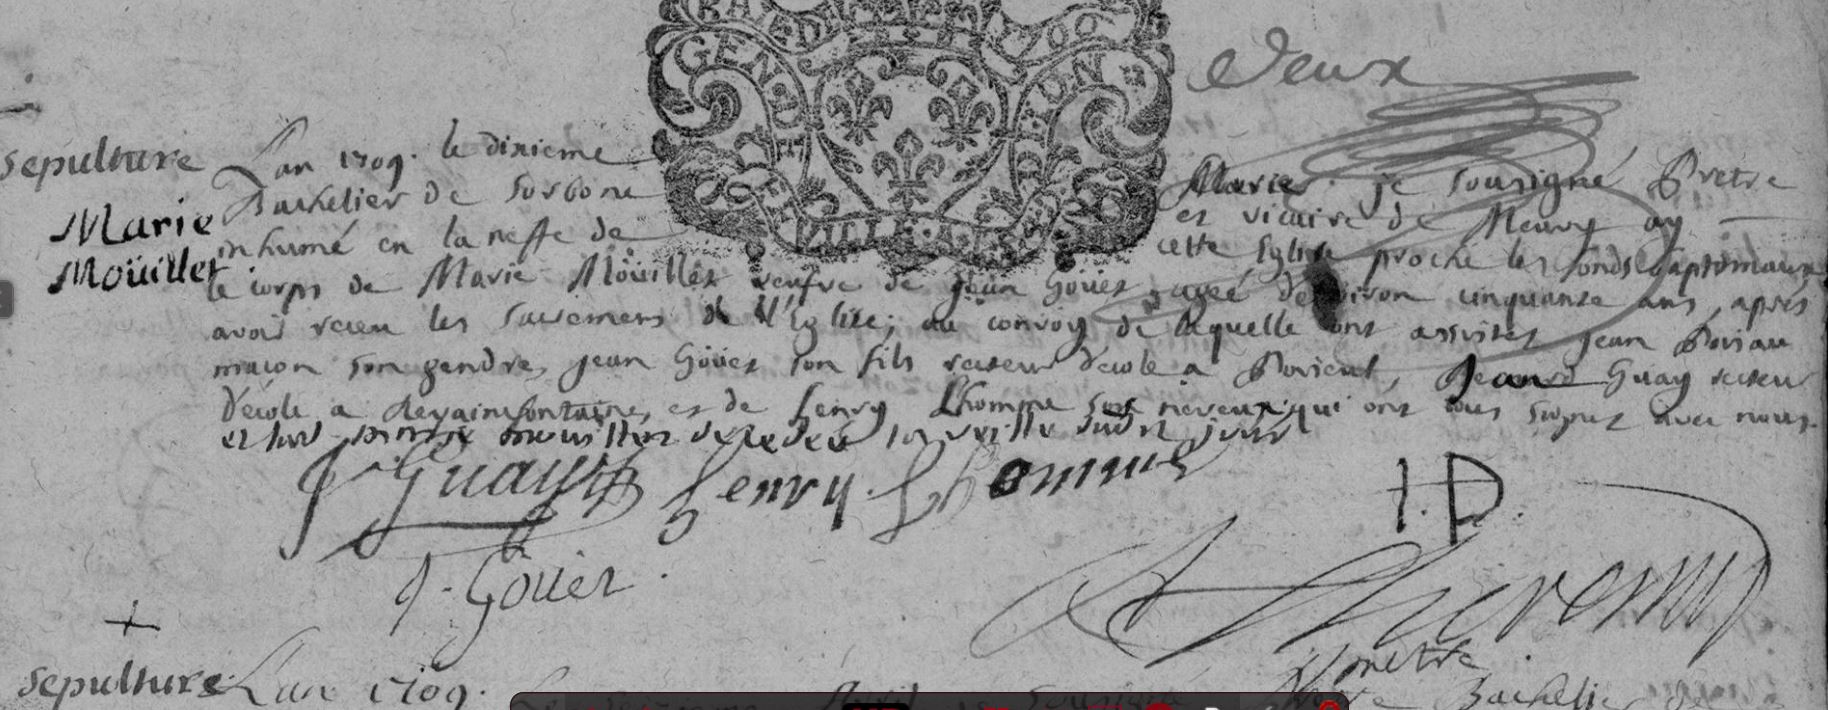 GEN DE
TION
deux
sepulture
Marie
Moüillet
Lan 1709. le dixieme Mars. je sousigné Pretre
Bachelier de Sorbone et vicaire de Meury ay
inhumé en la neffe de cette Eglise proche les fonds baptismaux
le corps de Marie Moüillet veufve de jean Goüet agée denviron cinquante ans, après
avoir receu les sacremens de l'Eglise; au convoy de laquelle ont assistet jean
macon son gendre, jean Goüet son fils recteur decole a , Jean Guay recteur
decole a et de henry Lhomme son neveux qui ont tous signet avec nous.
et Moüillet decedeé la veille dudit jour
J Guay henry Lhomme I.D.
J. Goüet
pretre
sepulture Lan 1709. sousigné Pretre Bachelier de